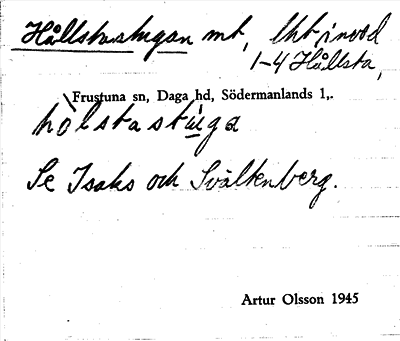 Hållstastugan mt,
1-4 Hållsta,
Frustuna sn, Daga hd, Södermanlands l,.
hòlstastùga
Se Isaks och Svältenberg.
Artur Olsson 1945